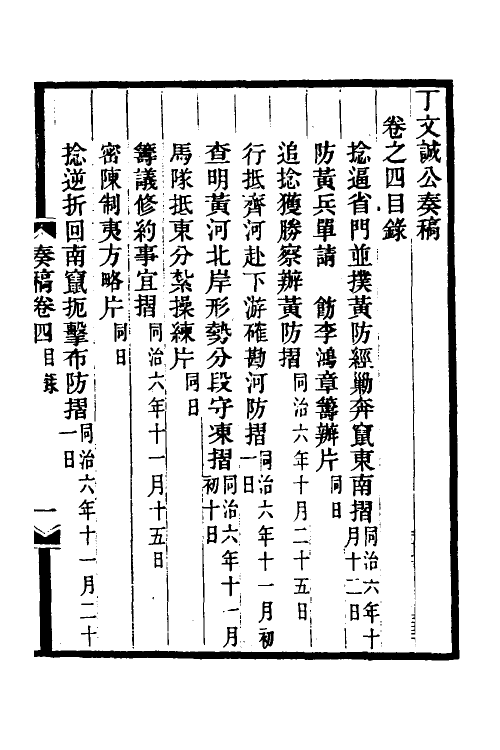 丁文誠公奏稿
卷之四目錄
捻逼省門並撲黃防經勦奔竄東南摺同治六年十月十二日
防黃兵單請　飭李鴻章籌辦片同日
追捻獲勝察辦黃防摺同治六年十月二十五日
行抵齊河赴下游確勘河防摺同治六年十一月初一日
查明黃河北岸形勢分段守凍摺同治六年十一月初十日
馬隊抵東分紮操練片同日
籌議修約事宜摺同治六年十一月十五日
密陳制夷方略片同日
捻逆折回南竄扼擊布防摺同治六年十一月二十一日
奏稿卷四目錄　一